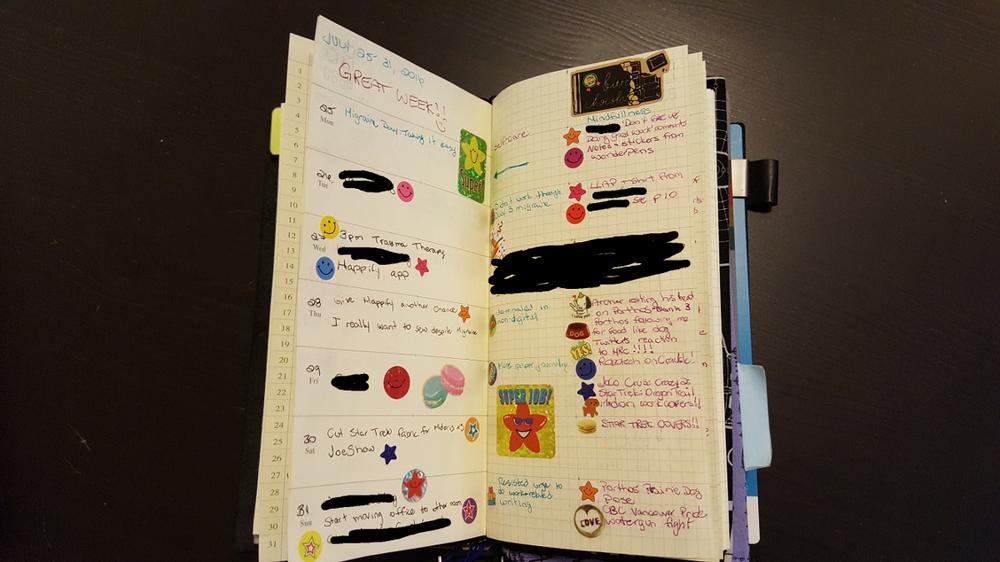 July 25-31, 2016
GREAT WEEK!!
1
2
3
4
5
6
7
8
9
10
11
12
13
14
15
16
17
18
19
20
21
22
23
24
25
26
27
28
29
30
31
25
Mon
Migraine Day-Taking it easy
SUPER!
Tue
Wed
3pm Trauma Therapy
Happify app
28
Thu
Give Happify another chance
I really want to sew despite Migraine
29
Fri
30
Sat
Cut Star Trek fabric for
JoCo Show
31
Sun
Start moving office to other room
Didn't work though
Day 3 migraine
Journaled in
non-digital
SUPER JOB!
Resisted urge to
do work-related
writing.
Mindfullness
Don't give up
Doing good work comments
Notes + stickers from
wonderpens.
LLAP t-shirt from
see p 10
Archer resting his head
on Porthos
Porthos following me
DOG
for food like dog
YES!
Twitters reaction
to HRC !!!!
Robotech on Crackle!
JoCo Cruise Crazy
Star Trek: Oregon Trail
STAR TREK COVERS!!
Porthos Prairie Dog
Pose
LOVE
CBC Vancouver Pride
watergun fight